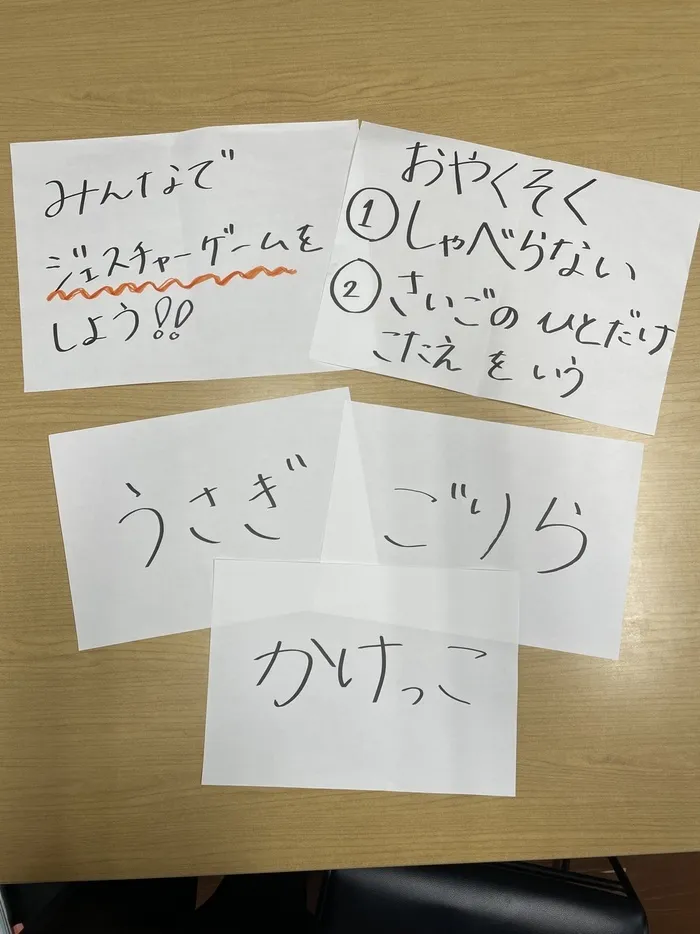 みんなで
ジェスチャーゲームを
しよう!!
おやくそく
① しゃべらない
② さいごの ひとだけ
こたえ を いう
うさぎ
ごりら
かけっこ